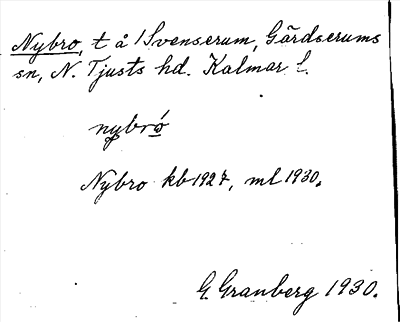 Nybro, t å / Svenserum, Gärdserums
sn, N. Tjusts hd. Kalmar l.
nybró
Nybro kb 1927, ml 1930.
G. Granberg 1930.